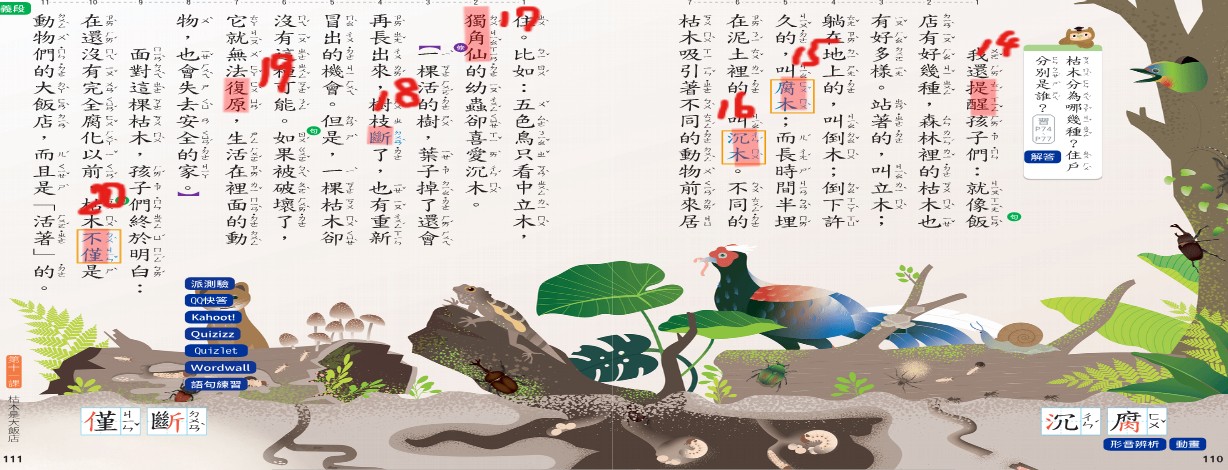 枯木分為哪幾種？住戶
分別是誰？
習
P74
P77
解答
14
我還提醒孩子們：就像飯
句
店有好幾種，森林裡的枯木也
有好多樣。站著的，叫立木；
躺在地上的，叫倒木；倒下許
15
久的，叫腐木；而長時間半埋
16
在泥土裡的，叫沉木。不同的
枯木吸引著不同的動物前來居
17
住。比如：五色鳥只看中立木，
獨角仙的幼蟲卻喜愛沉木。
修
【一棵活的樹，葉子掉了還會
18
再長出來，樹枝斷了，也有重新
冒出的機會。但是，一棵枯木卻
句
沒有這種可能。如果被破壞了，
19
它就無法復原，生活在裡面的動
物，也會失去安全的家。】
面對這棵枯木，孩子們終於明白：
20
在還沒有完全腐化以前，枯木不僅是
動物們的大飯店，而且是「活著」的。
義段
派測驗
QQ快答
Kahoot!
Quizizz
Quizlet
Wordwall
語句練習
腐 ㄈㄨˇ
沉 ㄔㄣˊ
形音辨析
動畫
110
斷 ㄉㄨㄢˋ
僅 ㄐㄧㄣˇ
第十一課 枯木是大飯店
111